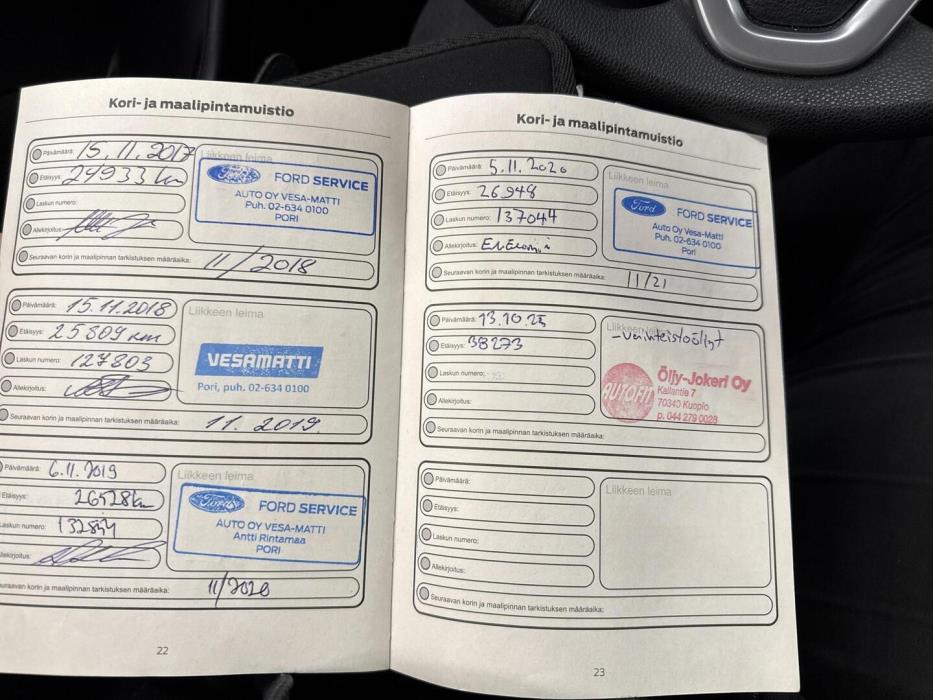 Kori- ja maalipintamuistio
Päivämäärä: 15.11.2017
Etäisyys: 24933 km
Laskun numero:
Allekirjoitus:
Liikkeen leima
Ford
FORD SERVICE
AUTO OY VESA-MATTI
Puh. 02-634 0100
PORI
Seuraavan korin ja maalipinnan tarkistuksen määräaika: 11/2018
Päivämäärä: 15.11.2018
Etäisyys: 25809 km
Laskun numero: 127803
Allekirjoitus:
Liikkeen leima
VESAMATTI
Pori, puh. 02-634 0100
Seuraavan korin ja maalipinnan tarkistuksen määräaika: 11. 2019.
Päivämäärä: 6.11.2019
Etäisyys: 26528km
Laskun numero: 132844
Allekirjoitus:
Liikkeen leima
Ford
FORD SERVICE
AUTO OY VESA-MATTI
Antti Rintamaa
PORI
Seuraavan korin ja maalipinnan tarkistuksen määräaika: 11/2020
22
Kori- ja maalipintamuistio
Päivämäärä: 5.11.2020
Etäisyys: 26948
Laskun numero: 137044
Allekirjoitus:
Liikkeen leima
Ford
FORD SERVICE
Auto Oy Vesa-Matti
Puh. 02-634 0100
Pori
Seuraavan korin ja maalipinnan tarkistuksen määräaika: 11/21
Päivämäärä: 13.10.25
Etäisyys: 38273
Laskun numero:
Allekirjoitus:
Liikkeen leima
AUTOFIT
Öljy-Jokeri Oy
Kallantie 7
70340 Kuopio
p. 044 279 0028
Seuraavan korin ja maalipinnan tarkistuksen määräaika:
Päivämäärä:
Etäisyys:
Laskun numero:
Allekirjoitus:
Liikkeen leima
Seuraavan korin ja maalipinnan tarkistuksen määräaika:
23